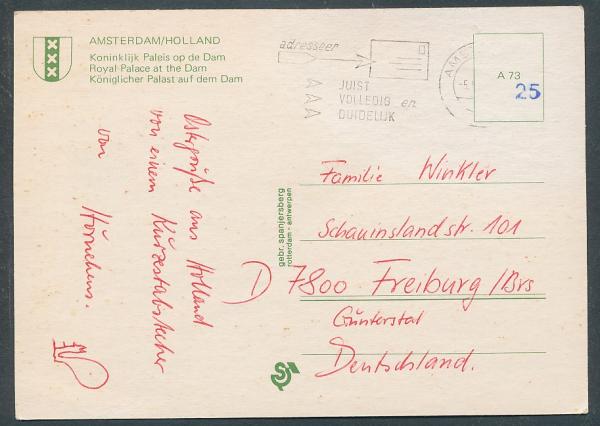 AMSTERDAM/HOLLAND
Koninklijk Paleis op de Dam
Royal Palace at the Dam
Königlicher Palast auf dem Dam
adresseer
JUIST
VOLLEDIG en
DUIDELIJK
A 73
25
Ostergrüße aus Holland
von einem Kurzestabstecher
von
gebr. spanjersberg
rotterdam - antwerpen
Familie Winkler
Schauinslandstr. 101
D 7800 Freiburg/Brs
Günterstal
Deutschland.